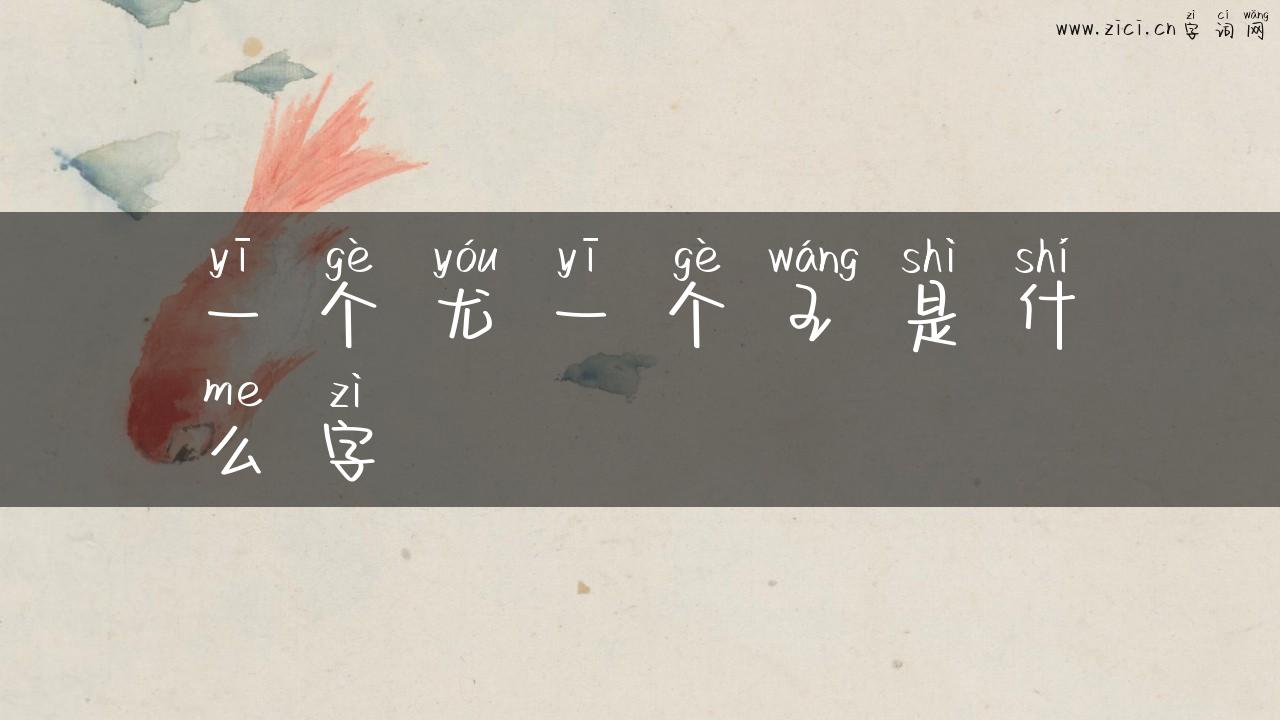 www.zici.cn 字词网
zì cí wǎng
yī gè yóu yī gè wáng shì shí
一个尤一个王是什
me zì
么字